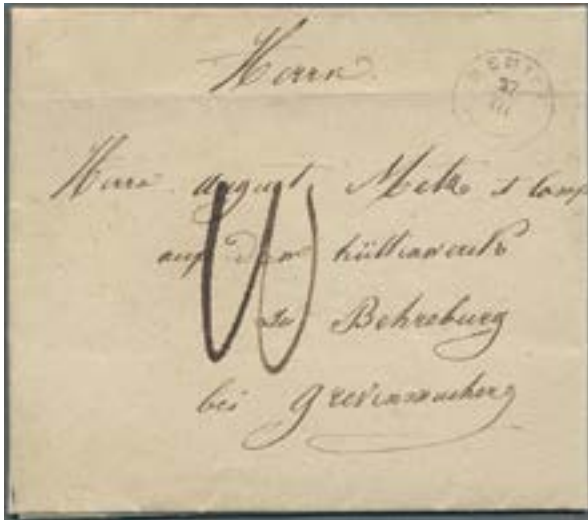 Herrn
37
III
Herrn August Metz & Comp
auf dem Hüttenwerk
zu Behreburg
bei Grevenmachern